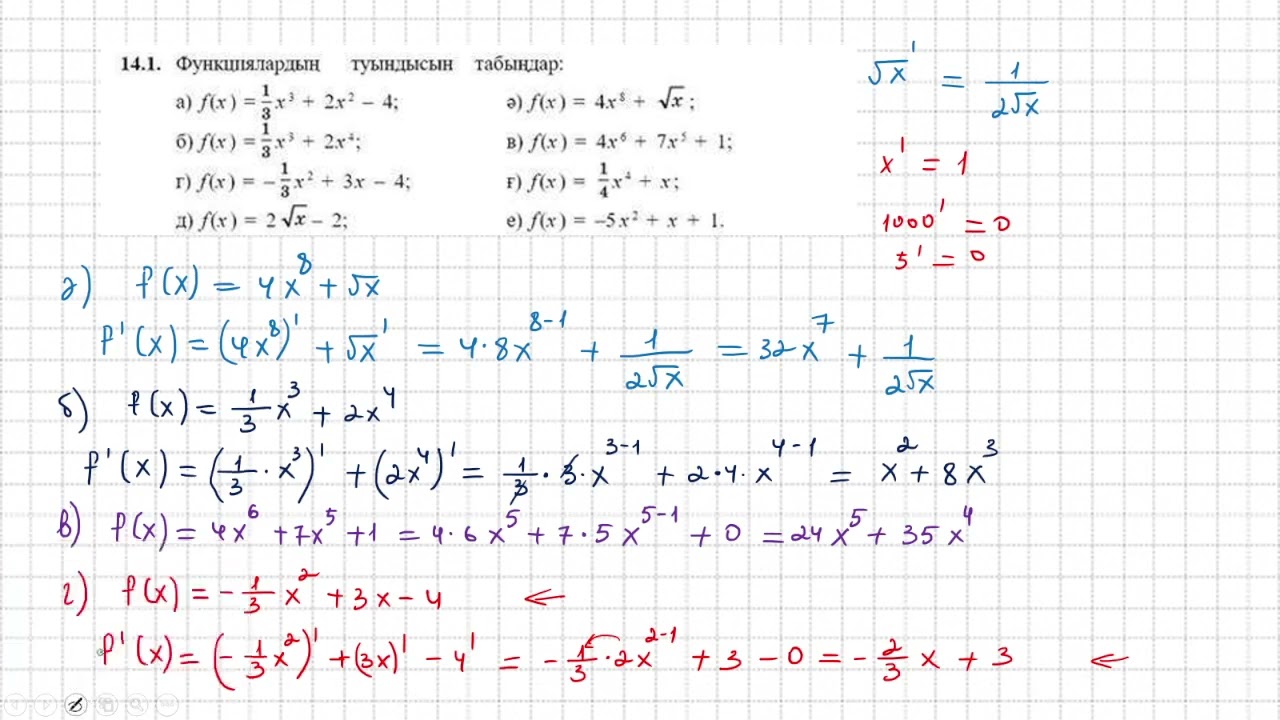 14.1. Функциялардың туындысын табыңдар:
а) f(x) = 1/3 x³ + 2x² – 4; ә) f(x) = 4x⁸ + √x;
б) f(x) = 1/3 x³ + 2x⁴; в) f(x) = 4x⁶ + 7x⁵ + 1;
г) f(x) = –1/3 x² + 3x – 4; ғ) f(x) = 1/4 x⁴ + x;
д) f(x) = 2√x – 2; е) f(x) = –5x² + x + 1.
√x' = 1/(2√x)
x' = 1
1000' = 0
5' = 0
ә) f(x) = 4x⁸ + √x
f'(x) = (4x⁸)' + √x' = 4·8x⁸⁻¹ + 1/(2√x) = 32x⁷ + 1/(2√x)
б) f(x) = 1/3 x³ + 2x⁴
f'(x) = (1/3 · x³)' + (2x⁴)' = 1/3 · 3 · x³⁻¹ + 2·4·x⁴⁻¹ = x² + 8x³
в) f(x) = 4x⁶ + 7x⁵ + 1 = 4·6x⁵ + 7·5x⁵⁻¹ + 0 = 24x⁵ + 35x⁴
г) f(x) = –1/3 x² + 3x – 4 ←
f'(x) = (–1/3 x²)' + (3x)' – 4' = –1/3 · 2x²⁻¹ + 3 – 0 = –2/3 x + 3 ←